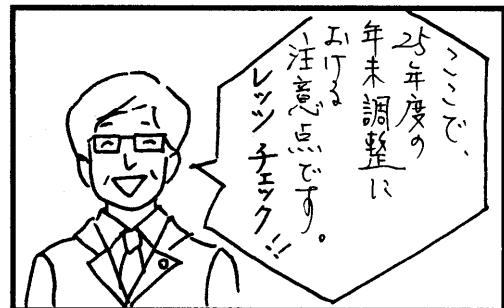 ここで、
25年度の
年末調整に
おける
注意点です。
レッツ チェック!!